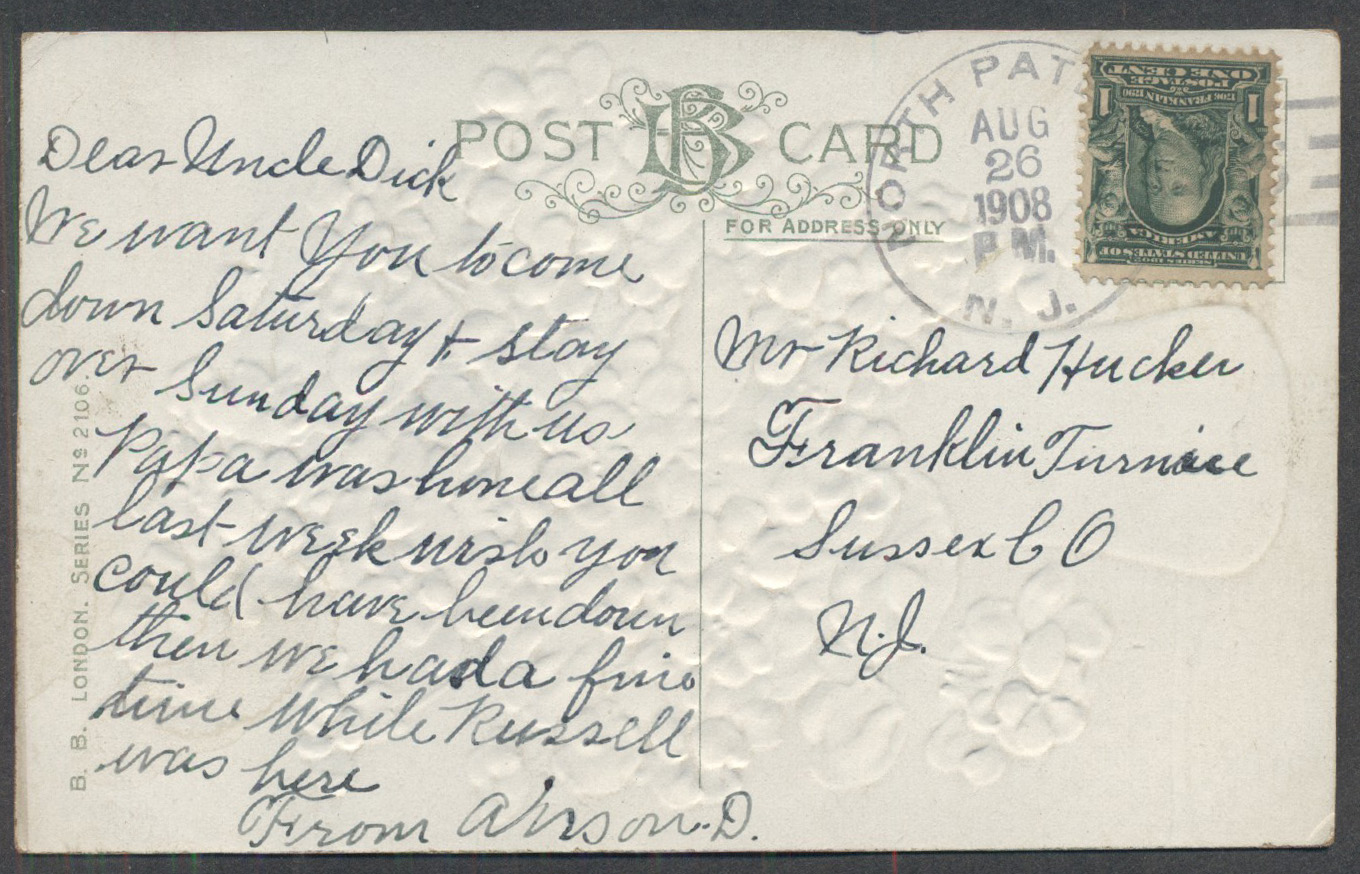 POST CARD
FOR ADDRESS ONLY
NORTH PAT
AUG
26
1908
P.M.
N. J.
1 1
ONE CENT
POSTAGE
AMERICA
UNITED STATES OF
SERIES 1902
Dear Uncle Dick
We want You to come
down Saturday & stay
over Sunday with us
Papa was home all
last week wish you
could have been down
then we had a fine
time while Russell
was here
From D.
Mr Richard Hucker
Franklin Furnace
Sussex CO
N.J.
B. B. LONDON. SERIES No 2106.